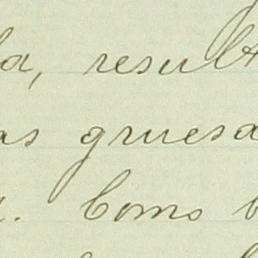 la, result
as gruesa
a. Como